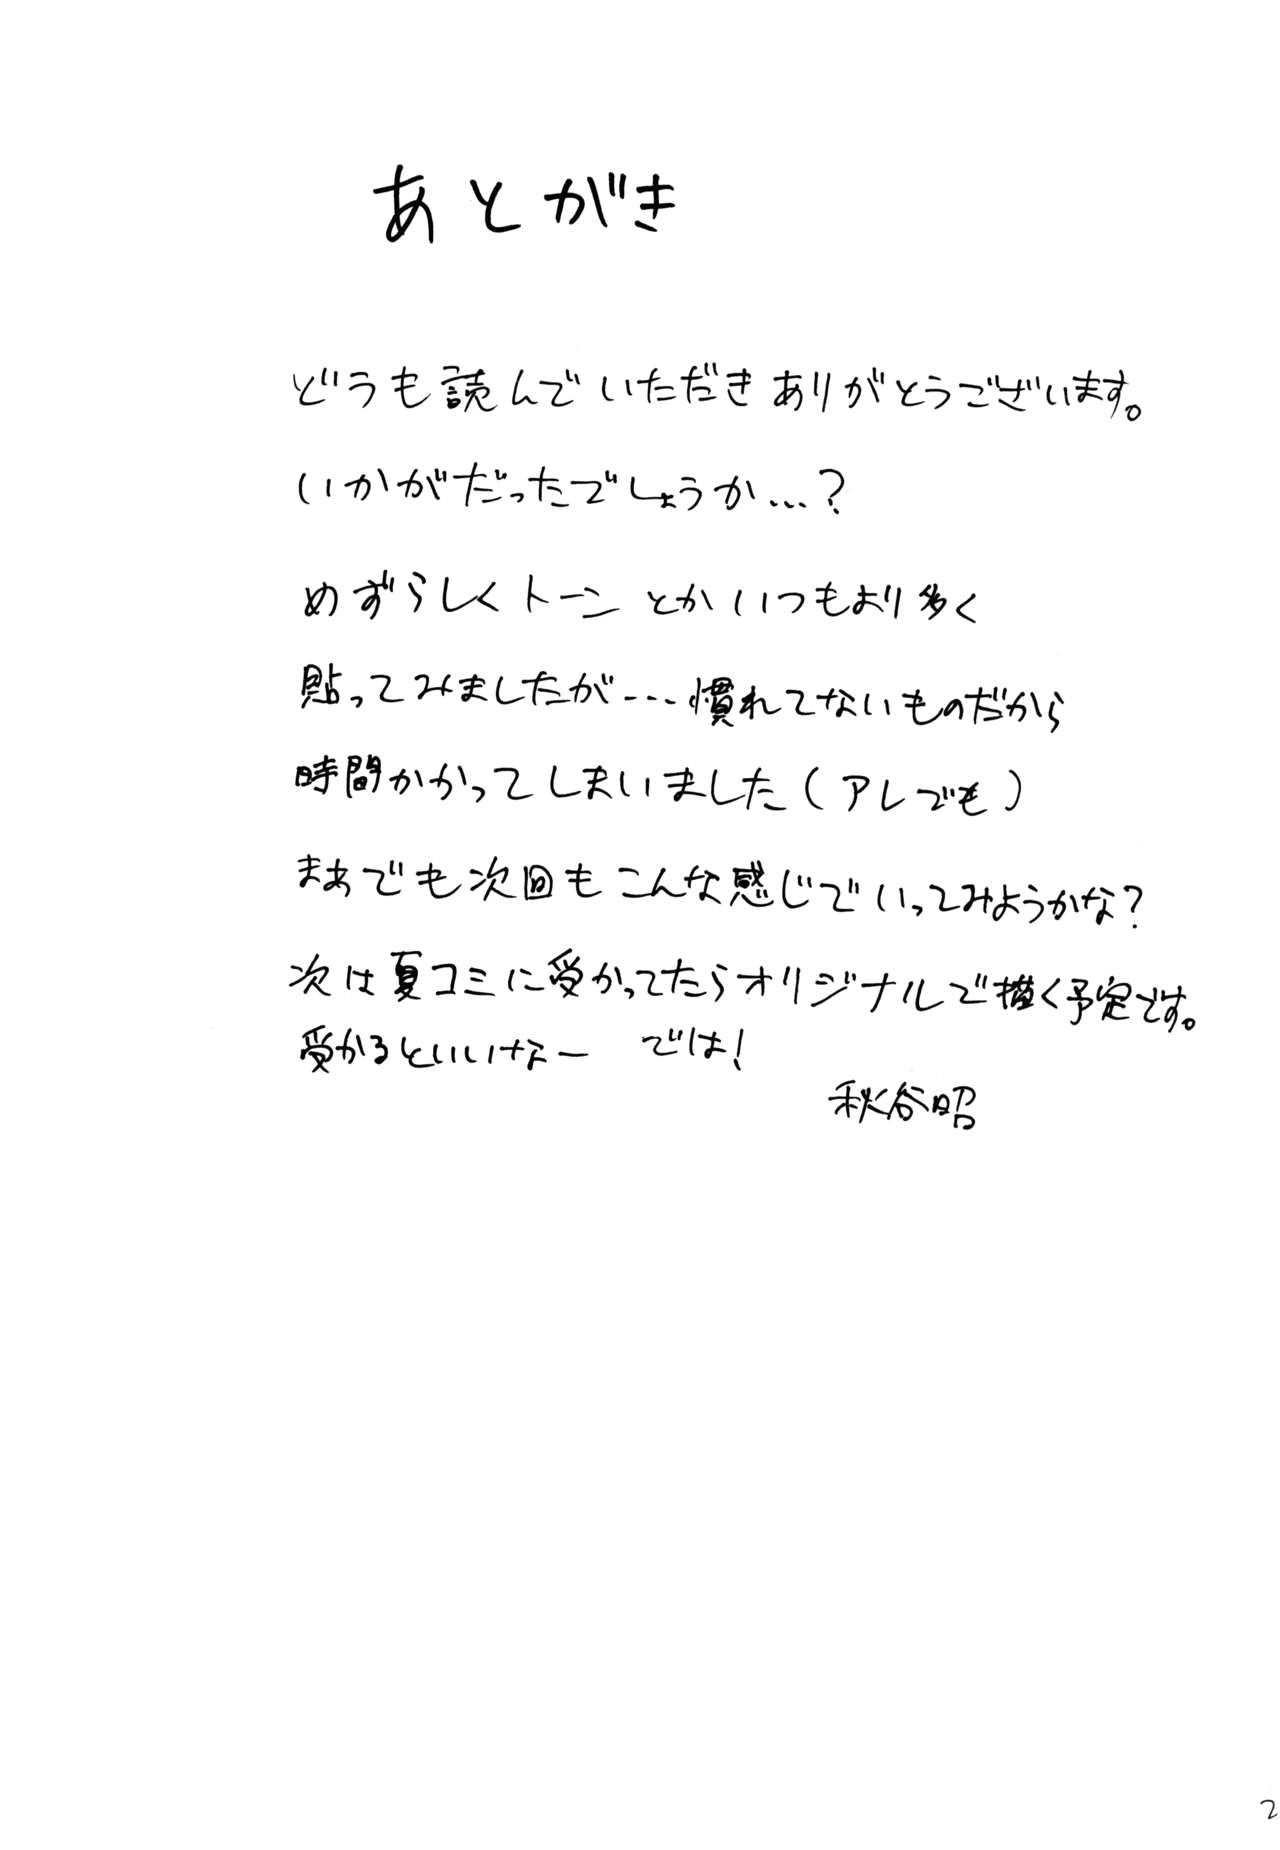 あとがき
どうも読んでいただきありがとうございます。
いかがだったでしょうか…?
めずらしくトーンとかいつもより多く
貼ってみましたが…慣れてないものだから
時間かかってしまいました(アレでも)
まあでも次回もこんな感じでいってみようかな?
次は夏コミに受かってたらオリジナルで描く予定です。
受かるといいなー　では!
秋谷昭
2